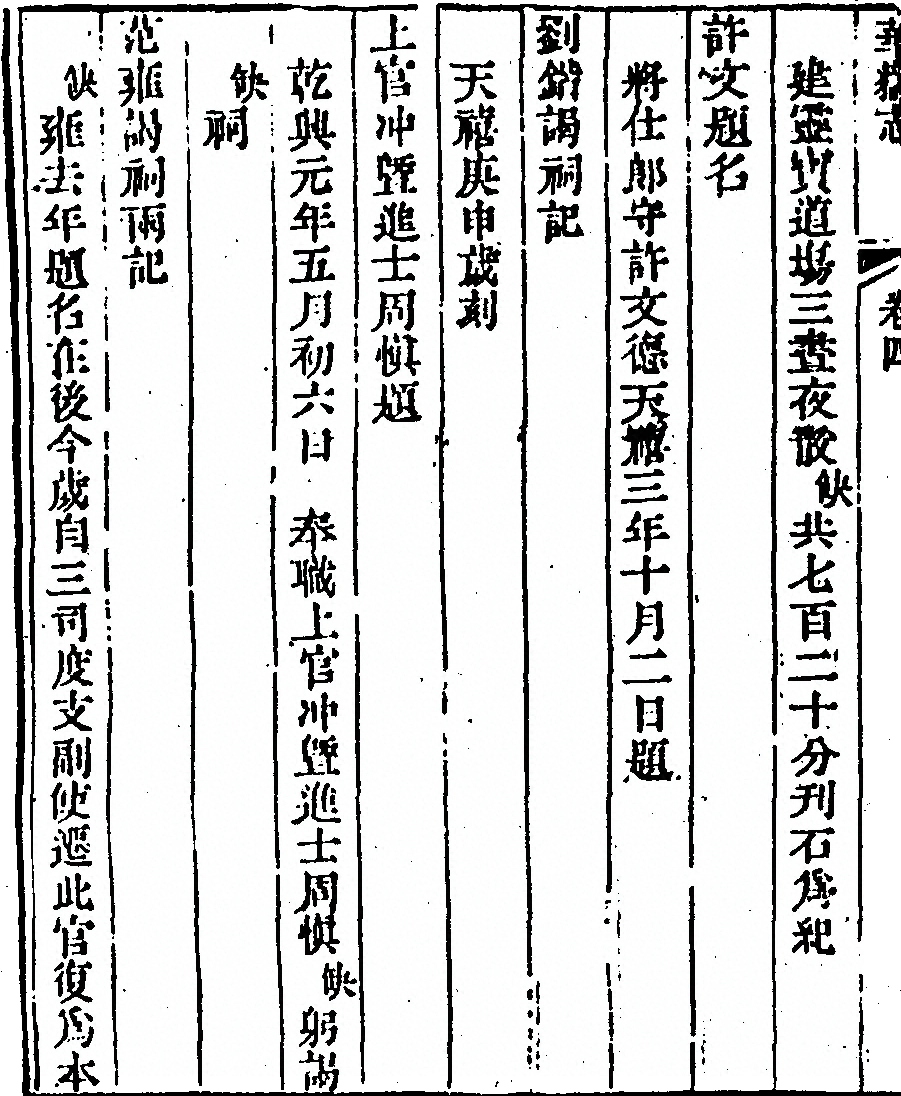 華嶽志 卷四
建靈寶道場三晝夜散缺共七百二十分刊石爲紀
許文題名
將仕郎守許文德天禧三年十月二日題
劉鍇謁祠記
天禧庚申歲刻
上官沖暨進士周愼題
乾興元年五月初六日 奉職上官沖暨進士周愼缺躬謁
缺祠
范雍謁祠雨記
缺雍去年題名在後今歲自三司度支副使遷此官復爲本